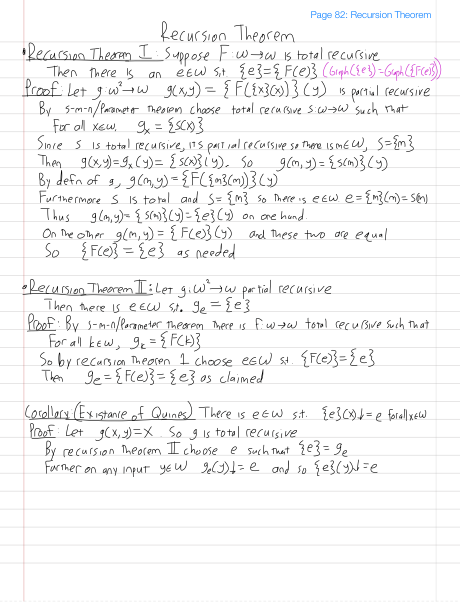 Page 82: Recursion Theorem
Recursion Theorem
• Recursion Theorem I: Suppose F: ω→ω is total recursive
Then there is an e∈ω s.t. {e}={F(e)} (Graph({e})=Graph({F(e)}))
Proof: Let g:ω²→ω g(x,y) = {F({x}(x))}(y) is partial recursive
By s-m-n/Parameter theorem choose total recursive s:ω→ω such that
For all x∈ω, gₓ = {s(x)}
Since s is total recursive, it's partial recursive so there is m∈ω, s={m}
Then g(x,y)=gₓ(y) = {s(x)}(y). So g(m,y) = {s(m)}(y)
By defn of g, g(m,y)={F({m}(m))}(y)
Furthermore s is total and s={m} so there is e∈ω e={m}(m)=s(m)
Thus g(m,y)={s(m)}(y)={e}(y) on one hand.
On the other g(m,y) = {F(e)}(y) and these two are equal
So {F(e)}={e} as needed
• Recursion Theorem II: Let g:ω²→ω partial recursive
Then there is e∈ω s.t. gₑ={e}
Proof: By s-m-n/Parameter theorem there is F:ω→ω total recursive such that
For all k∈ω, gₖ={F(k)}
So by recursion theorem 1 choose e∈ω s.t. {F(e)}={e}
Then gₑ={F(e)}={e} as claimed
Corollary (Existance of Quines) There is e∈ω s.t. {e}(x)↓=e for all x∈ω
Proof: Let g(x,y)=x. So g is total recursive
By recursion theorem II choose e such that {e}=gₑ
Further on any input y∈ω gₑ(y)↓=e and so {e}(y)↓=e